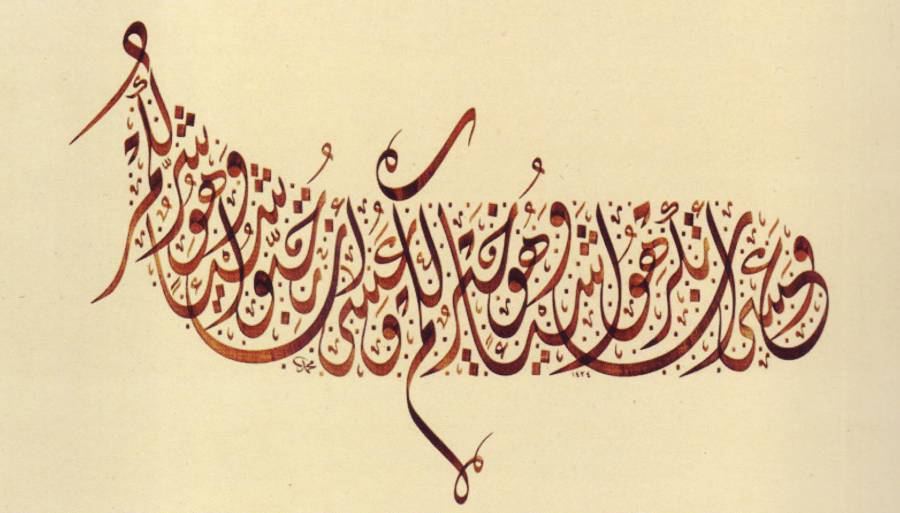 وَعَسَىٰ أَن تَكْرَهُوا شَيْئًا وَهُوَ خَيْرٌ لَّكُمْ وَعَسَىٰ أَن تُحِبُّوا شَيْئًا وَهُوَ شَرٌّ لَّكُمْ
١٤٢٤